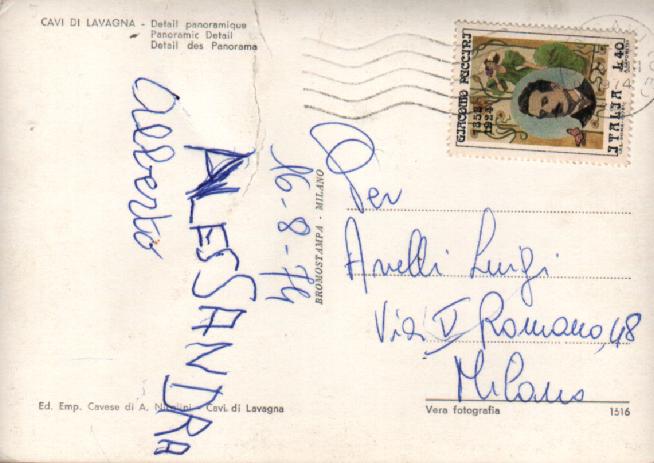 CAVI DI LAVAGNA - Detail panoramique
Panoramic Detail
Detail des Panorama
GIACOMO PUCCINI
1858
1924
L.40
ITALIA
Alberto
ALESSANDRA
16-8-74
BROMOSTAMPA - MILANO
Per
Anelli Luigi
Via V Romano, 48
Milano
Ed. Emp. Cavese di A. Nicolini - Cavi di Lavagna
Vera fotografia
1516